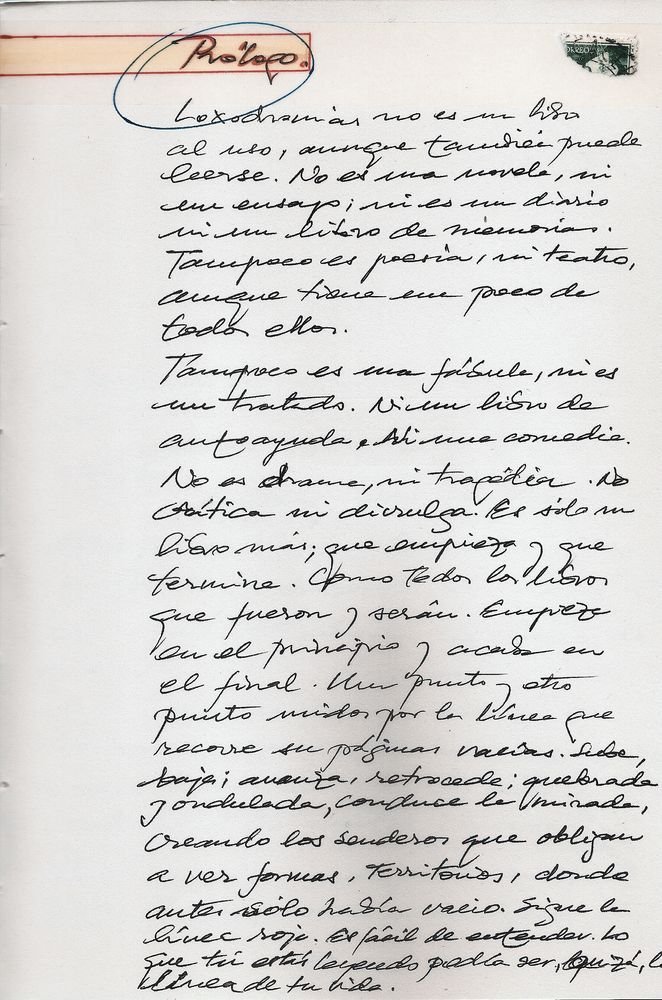 Prólogo.
CORREO
Loxodromias no es un libro
al uso, aunque también puede
leerse. No es una novela, ni
un ensayo; ni es un diario
ni un libro de memorias.
Tampoco es poesía, ni teatro,
aunque tiene un poco de
todos ellos.
Tampoco es una fábula, ni es
un tratado. Ni un libro de
autoayuda. Ni una comedia.
No es drama, ni tragédia. No
critica ni divulga. Es sólo un
libro más; que empieza y que
termina. Como todos los libros
que fueron y serán. Empieza
en el principio y acaba en
el final. Un punto y otro
punto unidos por la línea que
recorre sus páginas vacías. Sube,
baja; avanza, retrocede; quebrada
y ondulada, conduce la mirada,
creando los senderos que obligan
a ver formas, territorios, donde
antes sólo había vacio. Sigue la
línea roja. Es fácil de entender. Lo
que tú estás leyendo podía ser, quizá, la
línea de tu vida.